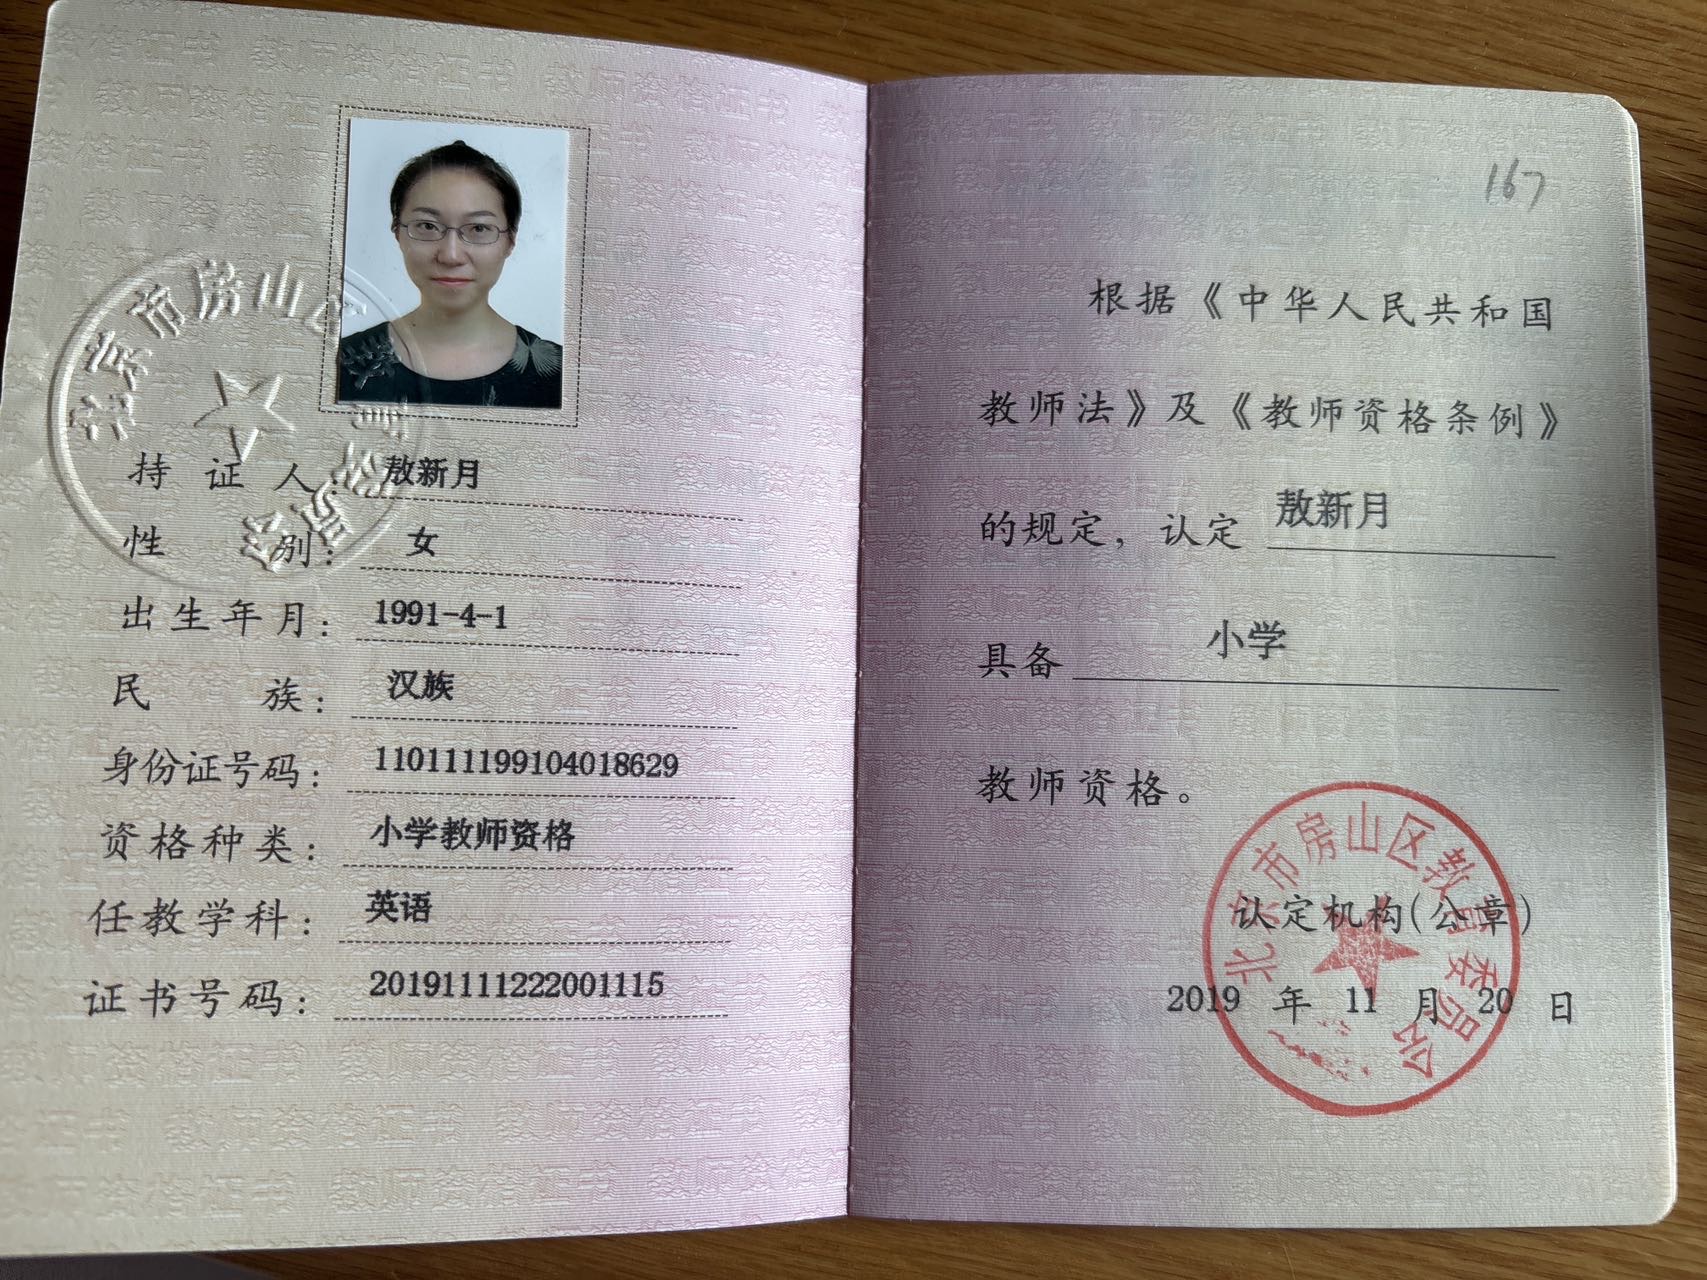 北京市房山区教育委员会
持证人：敖新月
性别：女
出生年月：1991-4-1
民族：汉族
身份证号码：110111199104018629
资格种类：小学教师资格
任教学科：英语
证书号码：20191111222001115
167
根据《中华人民共和国
教师法》及《教师资格条例》
的规定，认定 敖新月
具备 小学
教师资格。
北京市房山区教育委员会
认定机构(公章)
2019 年 11 月 20 日